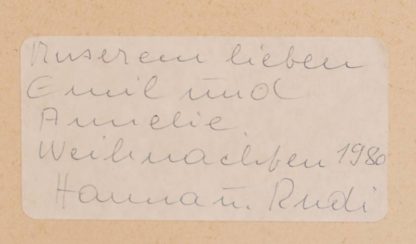 Unserem lieben
Emil und
Annelie
Weihnachten 1980
Hanna u. Rudi